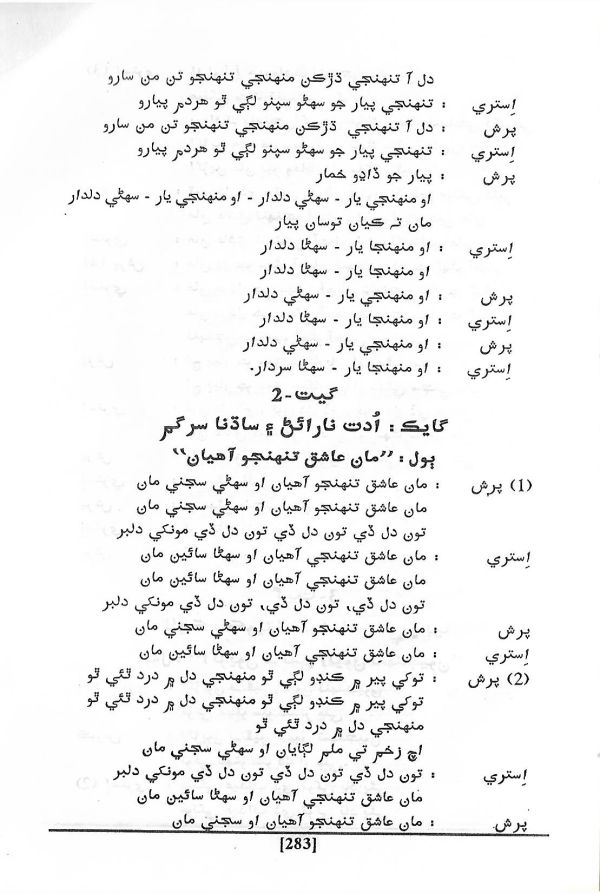 دل آ تنهنجي ڌڙڪن منهنجي تنهنجو تن من سارو
اِستري : تنهنجي پيار جو سهڻو سپنو لڳي ٿو هردم پيارو
پرش : دل آ تنهنجي ڌڙڪن منهنجي تنهنجو تن من سارو
اِستري : تنهنجي پيار جو سهڻو سپنو لڳي ٿو هردم پيارو
پرش : پيار جو ڏاڍو خمار
او منهنجي يار - سهڻي دلدار - او منهنجي يار - سهڻي دلدار
مان تہ ڪيان توسان پيار
اِستري : او منهنجا يار - سهڻا دلدار
او منهنجا يار - سهڻا دلدار
پرش : او منهنجي يار - سهڻي دلدار
اِستري : او منهنجا يار - سهڻا دلدار
پرش : او منهنجي يار - سهڻي دلدار
اِستري : او منهنجا يار - سهڻا سردار.
گيت-2
گايڪ : اُدت نارائڻ ۽ ساڌنا سرگم
ٻول : ”مان عاشق تنهنجو آهيان“
(1) پرش : مان عاشق تنهنجو آهيان او سهڻي سڄني مان
مان عاشق تنهنجو آهيان او سهڻي سڄني مان
تون دل ڏي تون دل ڏي تون دل ڏي مونکي دلبر
اِستري : مان عاشق تنهنجي آهيان او سهڻا سائين مان
مان عاشق تنهنجي آهيان او سهڻا سائين مان
تون دل ڏي، تون دل ڏي، تون دل ڏي مونکي دلبر
پرش : مان عاشق تنهنجو آهيان او سهڻي سڄني مان
اِستري : مان عاشق تنهنجي آهيان او سهڻا سائين مان
(2) پرش : توکي پير ۾ ڪنڊو لڳي ٿو منهنجي دل ۾ درد ٿئي ٿو
توکي پير ۾ ڪنڊو لڳي ٿو منهنجي دل ۾ درد ٿئي ٿو
منهنجي دل ۾ درد ٿئي ٿو
اچ زخم تي ملم لڳايان او سهڻي سڄني مان
اِستري : تون دل ڏي تون دل ڏي تون دل ڏي مونکي دلبر
مان عاشق تنهنجي آهيان او سهڻا سائين مان
پرش : مان عاشق تنهنجو آهيان او سڄني مان
[283]